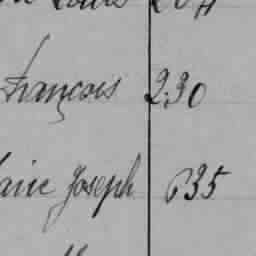 Louis 204
François 230
Marie Joseph 635